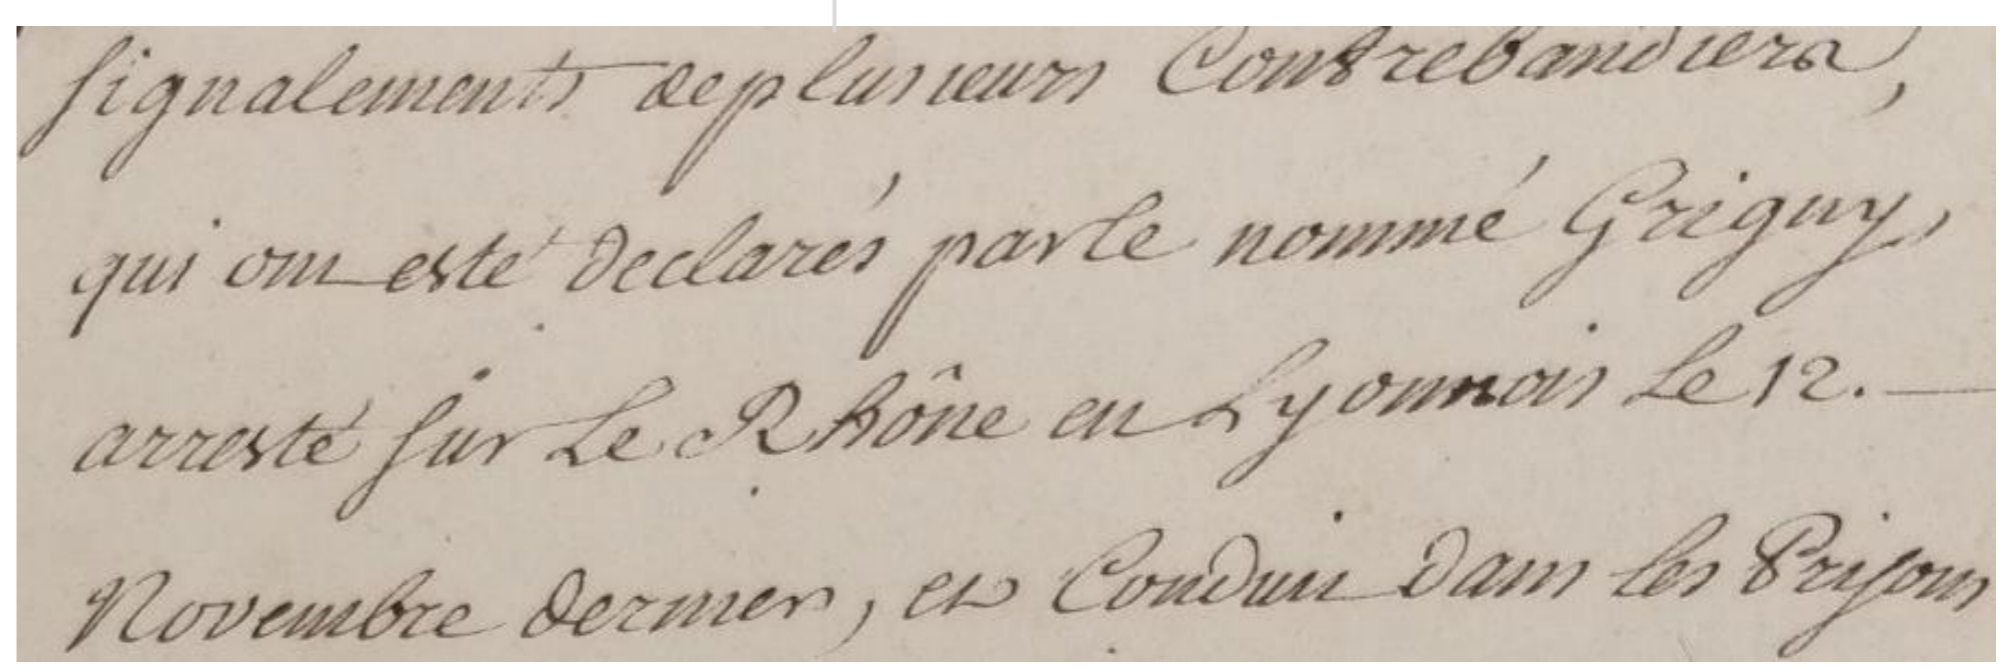 signalements de plusieurs Contrebandiers,
qui ont esté declarés par le nommé Grigny,
arresté sur Le Rhône en Lyonnois Le 12.
Novembre dernier, et Conduit dans les Prisons